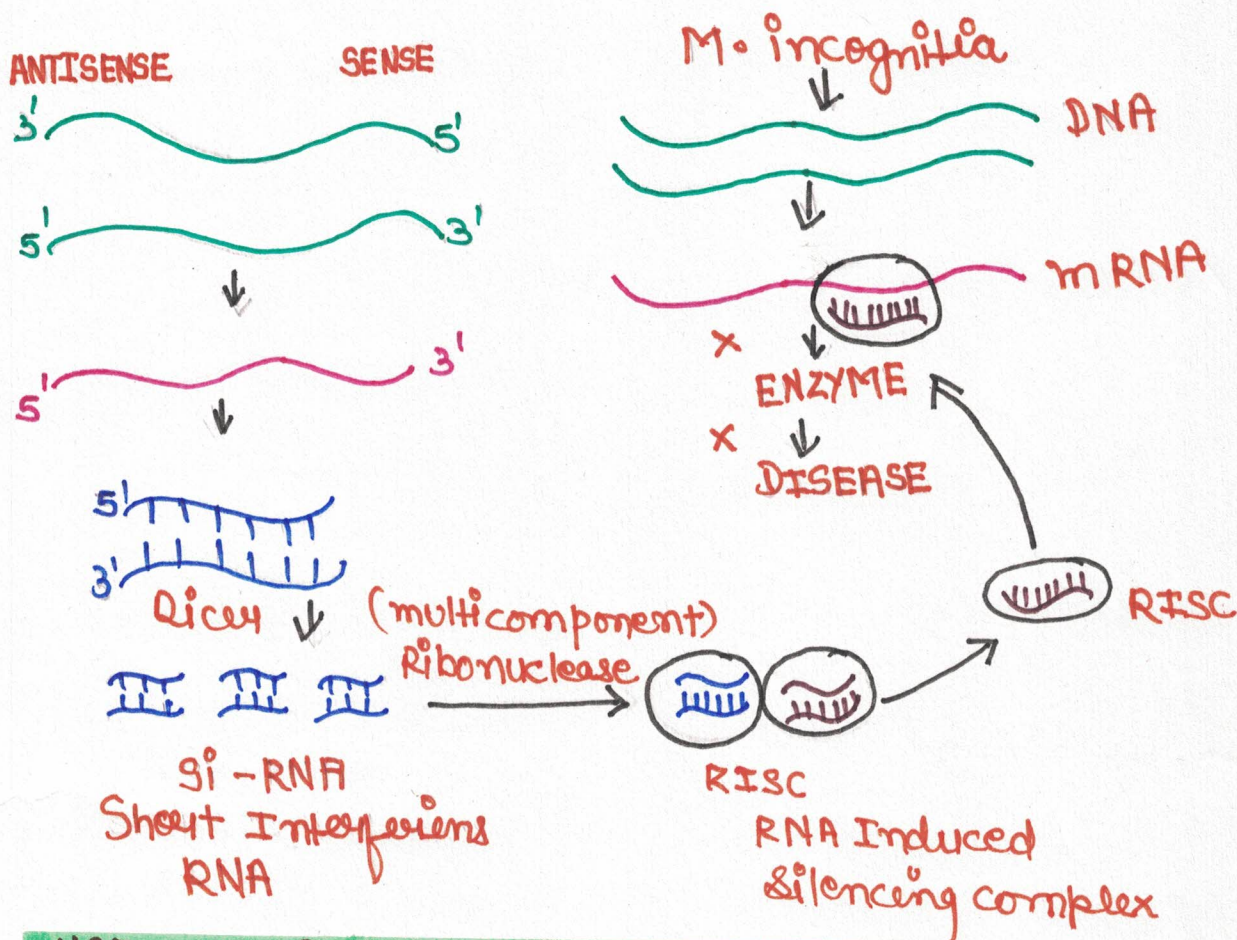 ANTISENSE
SENSE
3'
5'
5'
3'
5'
3'
5'
3'
Dicer
(multicomponent)
Ribonuclease
si-RNA
Short Interferiens
RNA
RISC
RNA Induced
Silencing complex
M. incognitia
DNA
mRNA
x
ENZYME
x
DISEASE
RISC